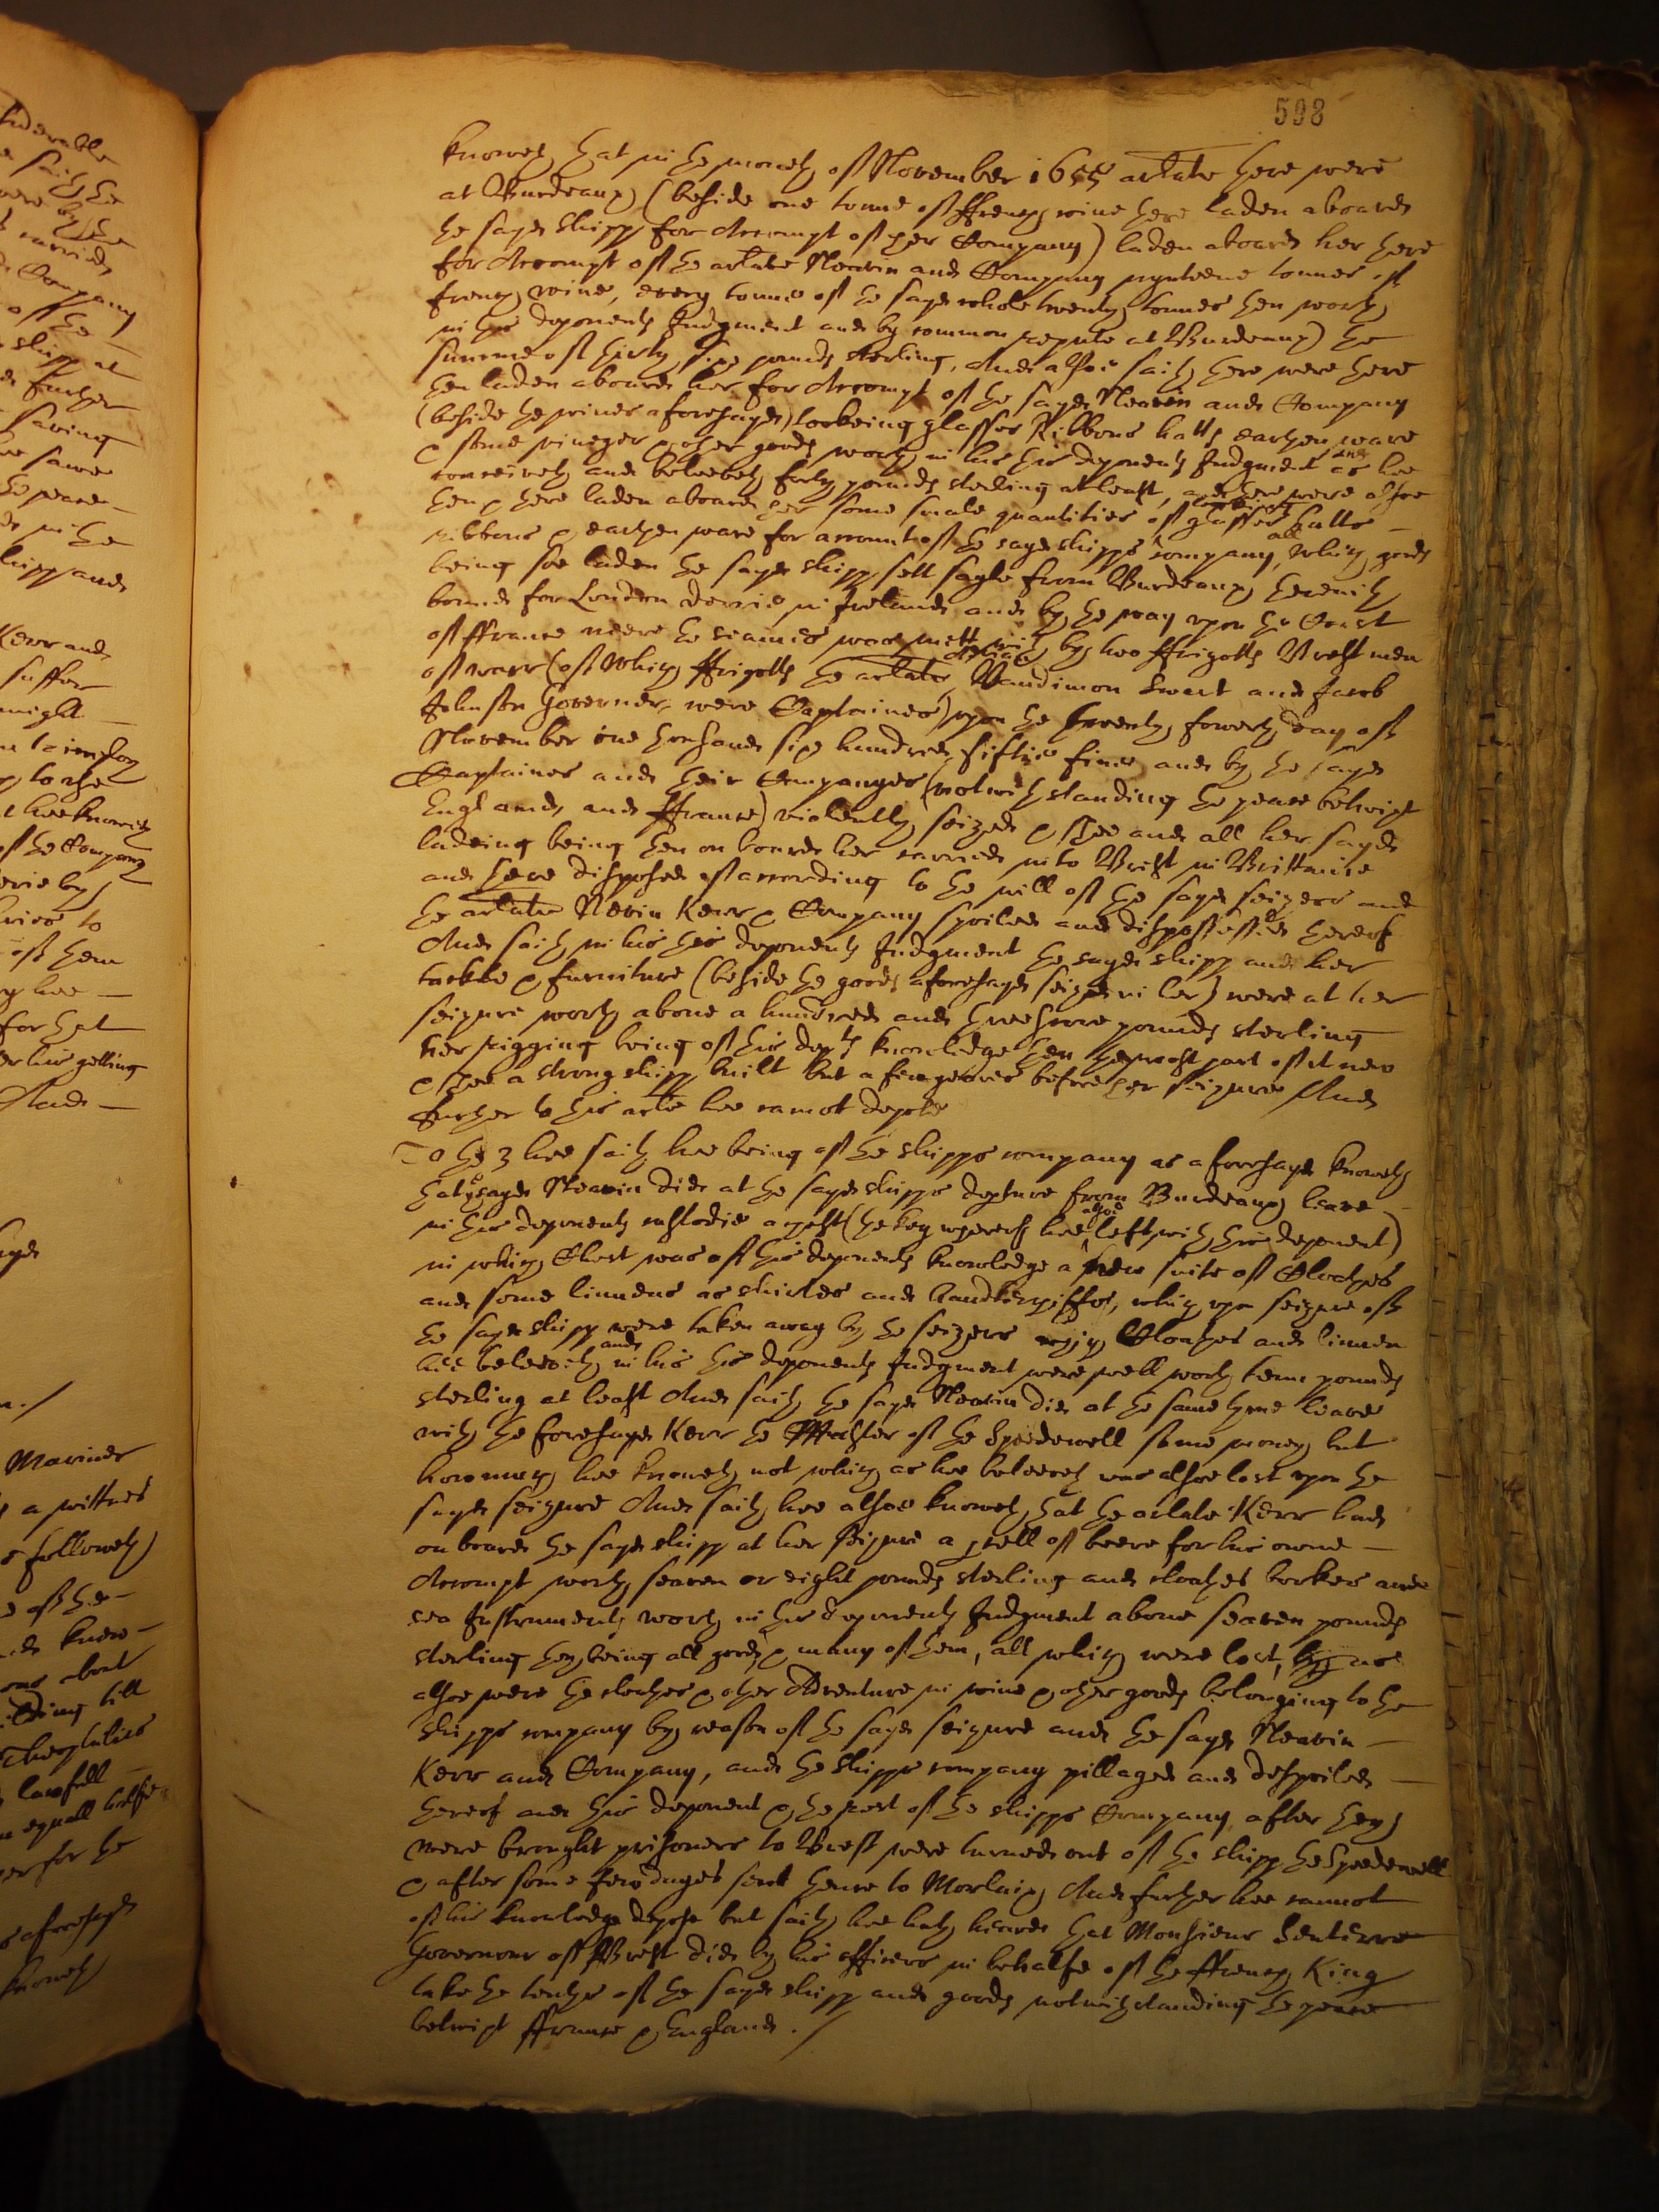 598
knoweth that in the moneth of November 1655 arlate there were
at Burdeaux (beside one tonne of ffrench wine there laden aboard
the sayd shipp for Accompt of her Company) laden aboard her there
for Accompt of the arlate Neavin and Company nynteene tonnes of
french wine, every tonne of the sayd whole twenty tonnes then worth
in this deponents Judgment and by common repute at Burdeaux the
summe of thirty six pounds sterling, And alsoe saith there were there
then laden aboard her for Accompt of the sayd Neavin and Company
(beside the wines aforesayd) lookeing glasses Ribbons hatts earthen ware
& some vineger & other goods worth in his this deponents Judgment and as hee
conceiveth and beleeveth forty pounds sterling at least, and there were alsoe
then & there laden aboard her some smale quantities of lookeing glasses hatts
ribbons & earthen ware for account of the sayd shipps company, all which goods
being soe laden the sayd shipp sett sayle from Burdeaux therewith
bound for London derrie in Ireland and by the way upon the Coast
of ffrance neere the seames was mett with by two ffrigotts Brest men
of warr (of which ffrigotts the arlate Vandimon Swart and Jacob
Johnson Governer were Captaines) upon the twenty fowerth day of
November one thousand six hundred fiftie five and by the sayd
Captaines and their Companyes (notwithstanding the peace betwixt
England and ffrance) violently seized & shee and all her sayd
ladeing being then on board her carried into Brest in Brittanie
and there disposed of according to the will of the sayd seizers and
the arlate Nevin Kerr & Company spoiled and dispossessed thereof
And saith in his this deponents Judgment the sayd shipp and her
tackle & furniture (beside the goods aforesayd seized in her) were at her
seizure worth above a hundred and threescore pounds sterling
her rigging being of this depts knowledge then the most part of it new
& shee a strong shipp built but a few yeares before her seizure And
further to this arle hee cannot depose
To the 3 hee saith hee being of the shipps company as aforesayd knoweth
that ye sayd Neavin did at the sayd shipps depture from Burdeaux leave
in this deponents custodie a chest (the key whereof hee alsoe left with this deponent)
in which Chest was of this deponents knowledge a new suite of Cloathes
and some linnens as shirtes and handkerchiffes, which upon seizure of
the sayd shipp were taken away by the seizers which Cloathes and linnen
hee beleeveth and in his this deponents Judgment were well worth tenn pounds
sterling at least And saith the sayd Neavin did at the same tyme leave
with the foresayd Kerr the Master of the Speedewell some money but
how much hee knoweth not which as hee beleeveth was alsoe lost upon the
sayd seizure And saith hee alsoe knoweth that the arlate Kerr had
on board the sayd shipp at her seizure a of beere for his owne
Accompt worth seaven or eight pounds sterling and cloathes bookes and
sea Instruments worth in this deponents Judgment above seaven pounds
sterling they being all good & many of them, all which were lost, as
alsoe were the cloathes & other Adventure in wine & other goods belonging to the
shipps company by reason of the sayd seizure and the sayd Neavin
Kerr and Company, and the shipps company pillaged and despoiled
thereof and this deponent & the rest of the shipps Company after they
were brought prisoners to Brest were turned out of the shipp the Speedewell
& after some few dayes sent thence to Morlaix And further hee cannot
of his knowledge depose but saith hee hath heard that Monsieur
Governour of Brest did by his officers in behalfe of the ffrench King
take the tenths of the sayd shipp and goods notwithstanding the peace
betwixt ffrance & England ./